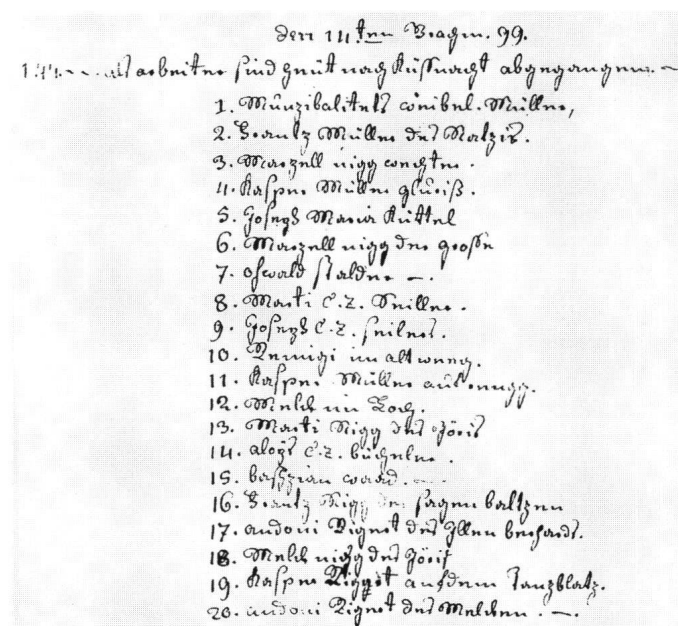 den 14ten Brachm. 99.
als arbeiter sind heüt nach Küssnacht abgegangen.
1. Munzibalitets Müller,
2. Frantz Müller des Balzis.
3. Marzell nigg
4. Kasper Müller
5. Joseph Maria Küttel
6. Marzell nigg der grosse
7. oswald stalder —.
8. Marti C.Z. Seiller.
9. Joseph C.Z. seilers.
10. Remigi im altweeg.
11. Kasper Müller
12. Melch im Loch.
13. Marti Nigg des Jöris
14. aloys C.Z. bücheler.
15. baschzian waad. —
16. Frantz Nigg des sagen baltzen
17. andoni Rigert des
18. Melch nigg des Jöris
19. Kasper Riggert auf dem Tanzblatz.
20. andoni Rigert des Melchen. —.